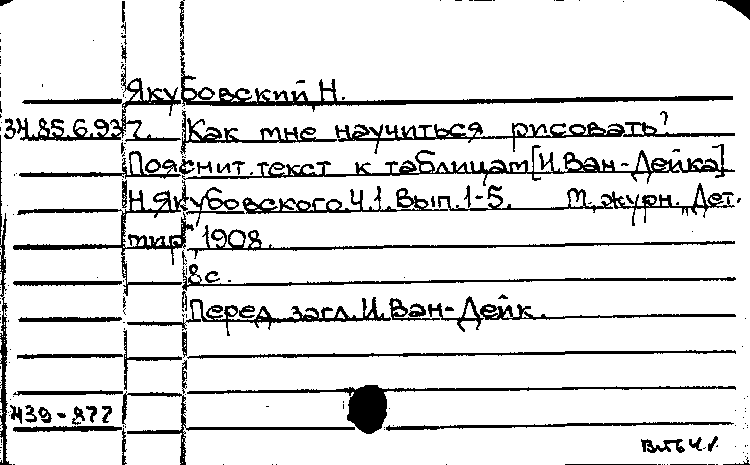 Якубовский, Н.
34.85.6.937. Как мне научиться рисовать?
Пояснит. текст к таблицам [И. Ван-Дейка]
Н. Якубовского. Ч.1. Вып.1-5. М., журн. „Дет.
мир", 1908.
8 с.
Перед загл. И. Ван-Дейк.
439-877